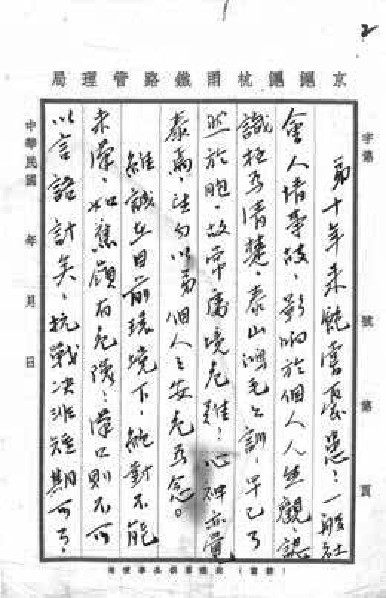 2
京滬滬杭甬鐵路管理局
字第 號 第 頁
弟十年来飽嘗憂患，一般社
會人情事故，影响於個人人生觀認
識極為清楚，泰山鴻毛之訓，早已了
然於胸，故常處境危難，心神亦覺
泰焉，勿以弟個人之安危為念。
維誠在目前環境下，絕對不能
来漢，如蕉嶺有危險，漢口則不可
以言語計矣，抗戰决非短期可了，
中華民國 年 月 日